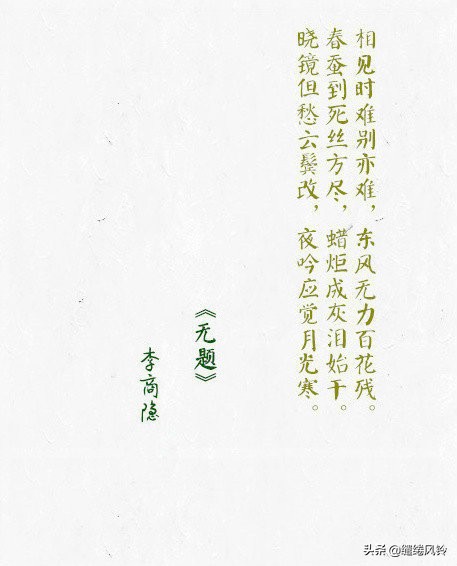 相见时难别亦难，东风无力百花残。
春蚕到死丝方尽，蜡炬成灰泪始干。
晓镜但愁云鬓改，夜吟应觉月光寒。
《无题》
李商隐
头条@缱绻风铃